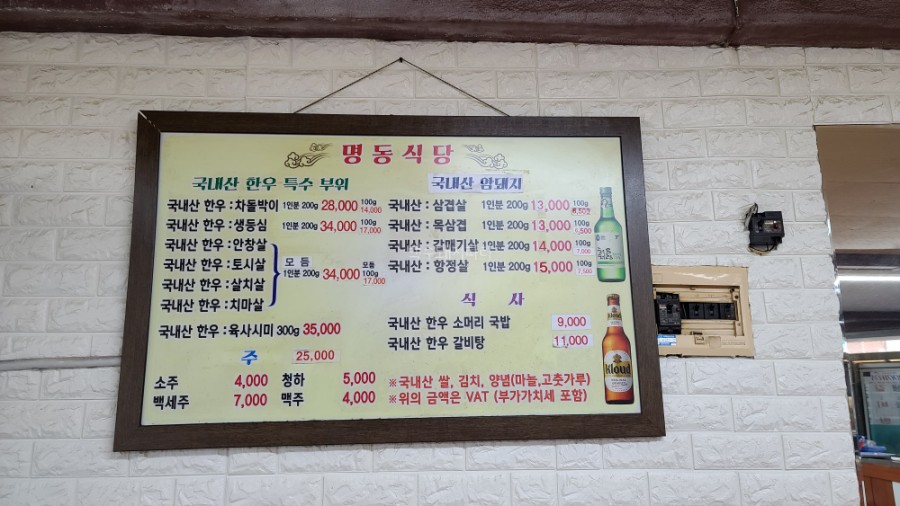 명동식당
국내산 한우 특수 부위
국내산 한우 : 차돌박이 1인분 200g 28,000 100g 14,000
국내산 한우 : 생등심 1인분 200g 34,000 100g 17,000
국내산 한우 : 안창살
국내산 한우 : 토시살
국내산 한우 : 살치살
국내산 한우 : 치마살
모 듬
1인분 200g 34,000 모듬 100g 17,000
국내산 한우 : 육사시미 300g 35,000
25,000
국내산 암돼지
국내산 : 삼겹살 1인분 200g 13,000 100g 6,500
국내산 : 목삼겹 1인분 200g 13,000 100g 6,500
국내산 : 갈매기살 1인분 200g 14,000 100g 7,000
국내산 : 항정살 1인분 200g 15,000 100g 7,500
식 사
국내산 한우 소머리 국밥 9,000
국내산 한우 갈비탕 11,000
주
소주 4,000 청하 5,000
백세주 7,000 맥주 4,000
※국내산 쌀, 김치, 양념(마늘,고춧가루)
※위의 금액은 VAT (부가가치세 포함)
Kloud